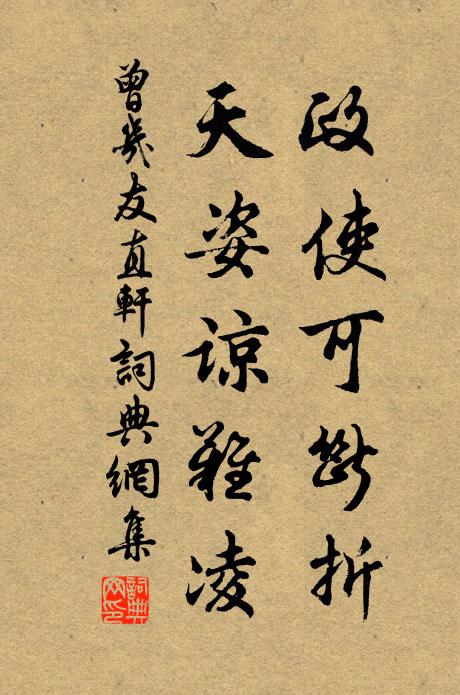 政使可斷折
天姿諒難凌
曾幾友直軒詞典網集